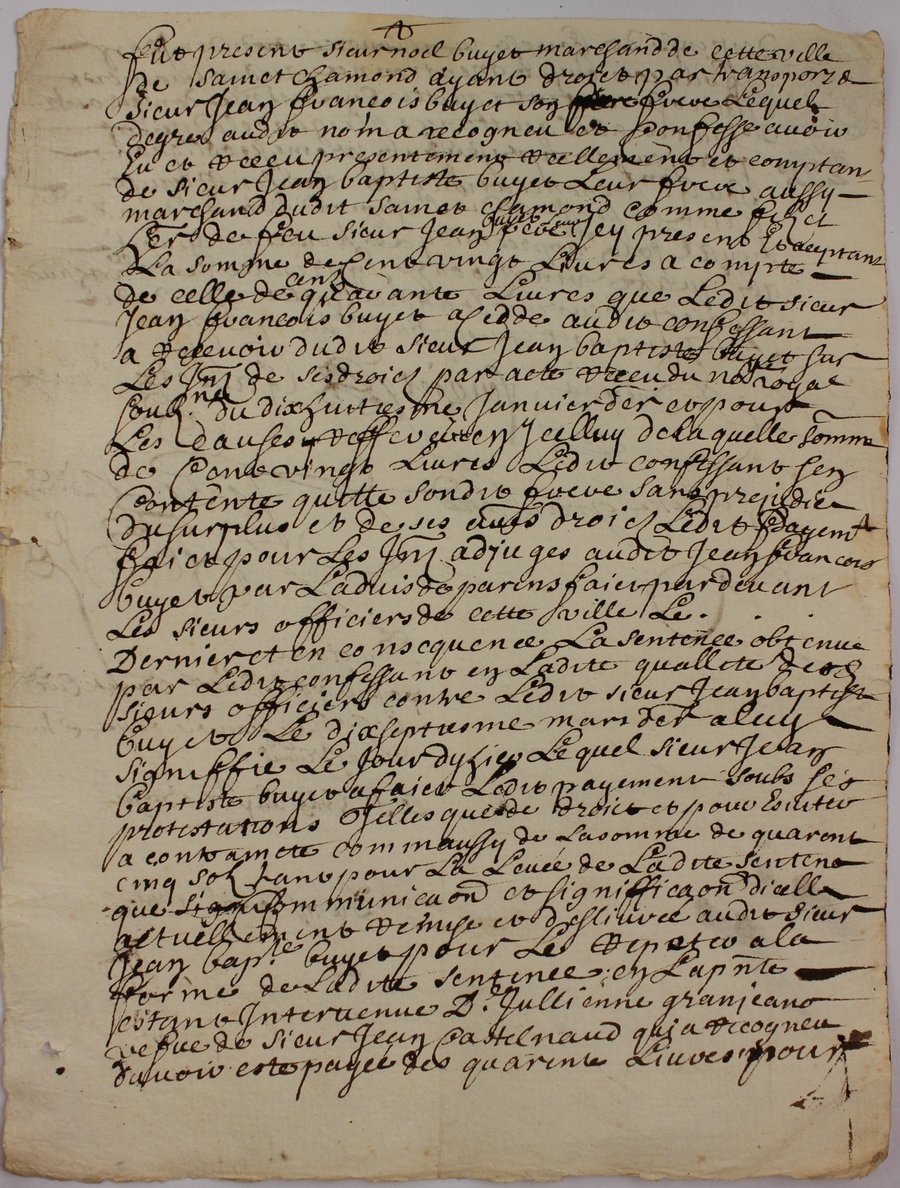 fut present sieur noel buyet marchand de cette ville
de sainct chamond ayant droict par transport de
sieur Jean francois buyet son frere Lequel
degre audit nom a recogneu et confesse avoir
Eu et receu presentement reellement et comptan
de sieur Jean baptiste buyet Leur frere aussy
marchand dudit sainct chamond comme filz et
de feu sieur Jean buyet Leur pere Icy present Et aceptant
La somme de Cent vingt Livres a compte
de celle de cent quarante Livres que Ledit sieur
Jean francois buyet a cedde audit confessant
a recevoir dudit sieur Jean baptiste buyet sur
Les Jntz de ses droictz par acte receu du nore royal
soubzne du dixhuitiesme Janvier der et pour
Les causes reffere en Jcelluy de laquelle somme
de Cent vingt Livres Ledit confessant sen
Contente quitte sondit frere sans prejudice
du surplus et de ses autres droictz Ledit payemt
faict pour Les Jntz adjuges audit Jean francois
buyet par Ladvis de parens faict pardevant
Les sieurs officiers de cette ville Le . . .
Dernier et en consequence La sentence obtenue
par Ledit confessant en Ladite quallite desd
sieurs officiers contre Ledit sieur Jean baptiste
buyet Le dixseptiesme mars der a luy
signiffie Le Jourdhier Lequel sieur Jean
baptiste buyet a faict Ledit payement soubs ses
protestations Telles que de droict et pour Esviter
a contraincte comm aussy de La somme de quarent
cinq solz tant pour La Levee de Ladite sentence
que communicaon et significaon dicelle
actuellement remise et deslivree audit sieur
Jean bapte buyet pour Le repeter a la
forme de Ladite sentence en Lapnte
estant Intervenue De Jullienne granjeane
vefve de sieur Jean Castelnaud quja recogneu
davoir este payee des quarente Livres pour